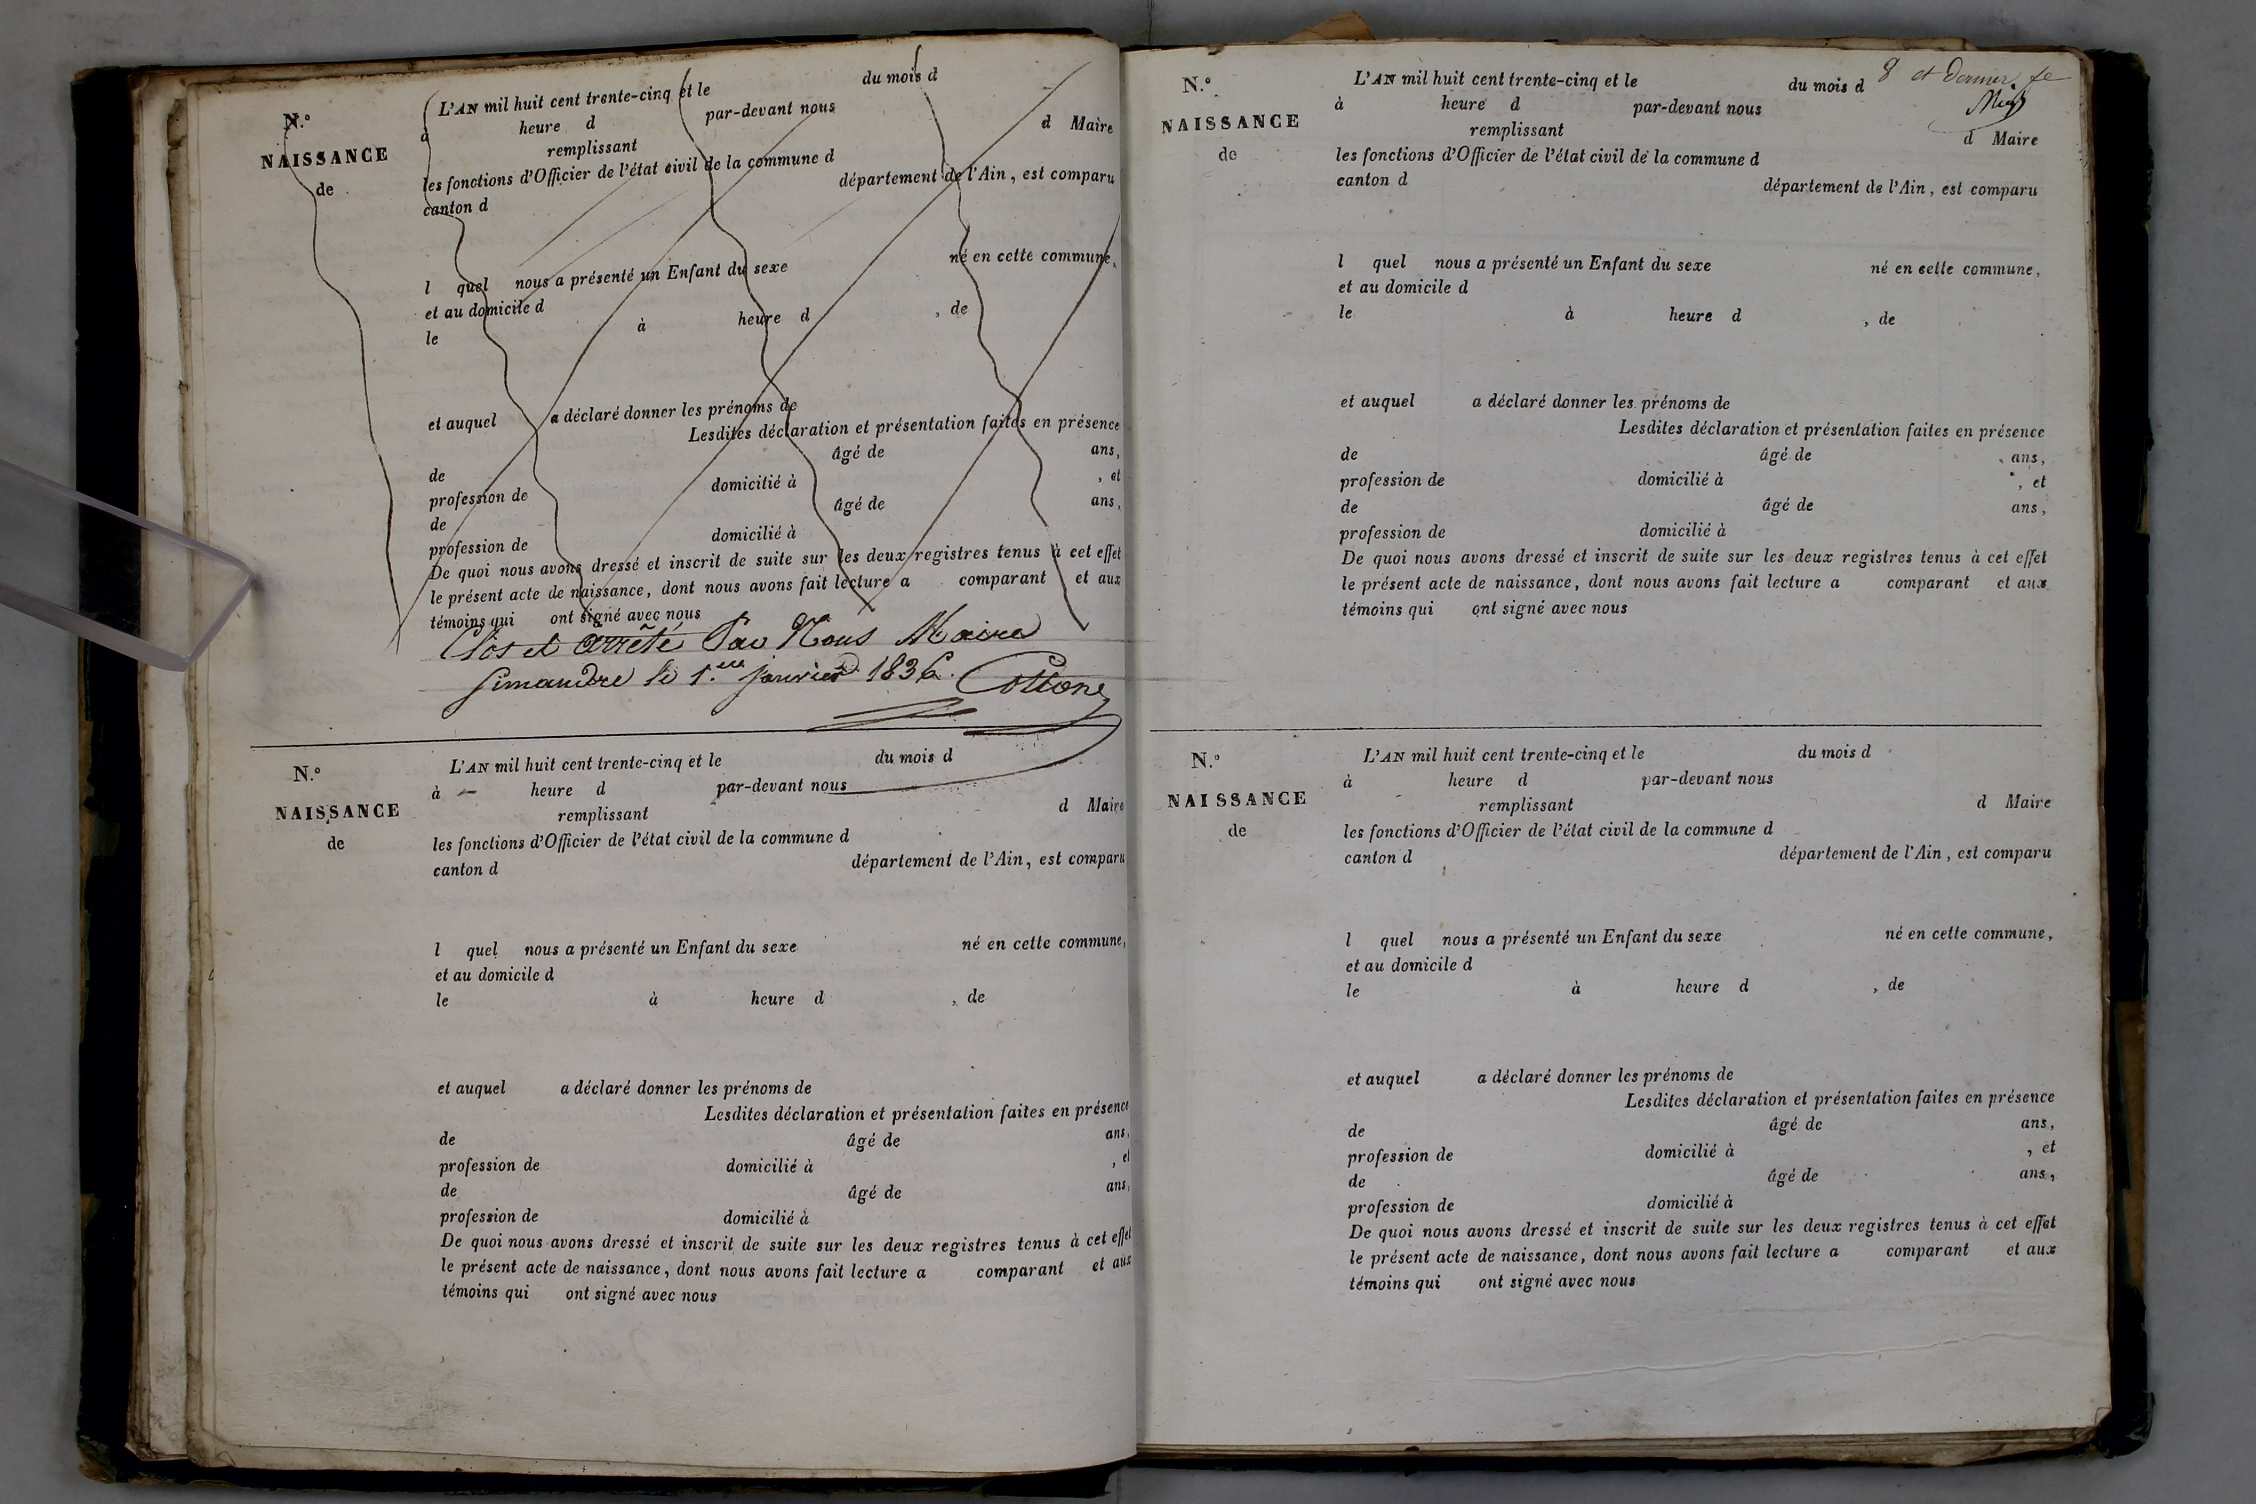 N.º
NAISSANCE
de
L'AN mil huit cent trente-cinq et le du mois d
à heure d par-devant nous
remplissant d Maire
les fonctions d'Officier de l'état civil de la commune d
canton d département de l'Ain, est comparu
l quel nous a présenté un Enfant du sexe né en cette commune,
et au domicile d
le à heure d , de
et auquel a déclaré donner les prénoms de
Lesdites déclaration et présentation faites en présence
de âgé de ans,
profession de domicilié à , et
de âgé de ans,
profession de domicilié à
De quoi nous avons dressé et inscrit de suite sur les deux registres tenus à cet effet
le présent acte de naissance, dont nous avons fait lecture a comparant et aux
témoins qui ont signé avec nous
Clos et arrêté Par Nous Maire
Simandre le 1.er janvier 1836.
N.º
NAISSANCE
de
L'AN mil huit cent trente-cinq et le du mois d
à heure d par-devant nous
remplissant d Maire
les fonctions d'Officier de l'état civil de la commune d
canton d département de l'Ain, est comparu
l quel nous a présenté un Enfant du sexe né en cette commune,
et au domicile d
le à heure d , de
et auquel a déclaré donner les prénoms de
Lesdites déclaration et présentation faites en présence
de âgé de ans,
profession de domicilié à , et
de âgé de ans,
profession de domicilié à
De quoi nous avons dressé et inscrit de suite sur les deux registres tenus à cet effet
le présent acte de naissance, dont nous avons fait lecture a comparant et aux
témoins qui ont signé avec nous
8 et dernier fe
N.º
NAISSANCE
de
L'AN mil huit cent trente-cinq et le du mois d
à heure d par-devant nous
remplissant d Maire
les fonctions d'Officier de l'état civil de la commune d
canton d département de l'Ain, est comparu
l quel nous a présenté un Enfant du sexe né en cette commune,
et au domicile d
le à heure d , de
et auquel a déclaré donner les prénoms de
Lesdites déclaration et présentation faites en présence
de âgé de ans,
profession de domicilié à , et
de âgé de ans,
profession de domicilié à
De quoi nous avons dressé et inscrit de suite sur les deux registres tenus à cet effet
le présent acte de naissance, dont nous avons fait lecture a comparant et aux
témoins qui ont signé avec nous
N.º
NAISSANCE
de
L'AN mil huit cent trente-cinq et le du mois d
à heure d par-devant nous
remplissant d Maire
les fonctions d'Officier de l'état civil de la commune d
canton d département de l'Ain, est comparu
l quel nous a présenté un Enfant du sexe né en cette commune,
et au domicile d
le à heure d , de
et auquel a déclaré donner les prénoms de
Lesdites déclaration et présentation faites en présence
de âgé de ans,
profession de domicilié à , et
de âgé de ans,
profession de domicilié à
De quoi nous avons dressé et inscrit de suite sur les deux registres tenus à cet effet
le présent acte de naissance, dont nous avons fait lecture a comparant et aux
témoins qui ont signé avec nous